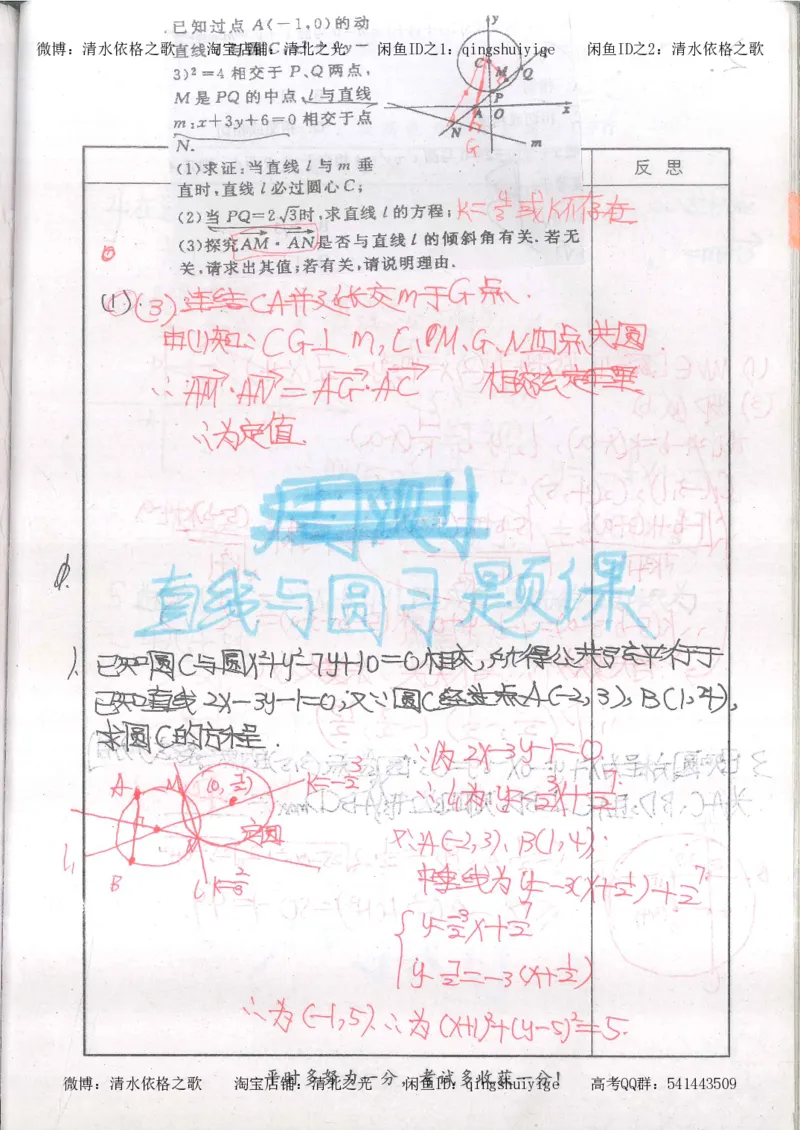 已知过点 A(-1,0)的动
微博：清水依格之歌 淘宝店铺：清北之光 闲鱼ID之1：qingshuiyige 闲鱼ID之2：清水依格之歌
3)²=4 相交于 P、Q 两点,
M 是 PQ 的中点,l 与直线
m:x+3y+6=0 相交于点
N.
(1)求证:当直线 l 与 m 垂
直时,直线 l 必过圆心 C;
(2)当 PQ=2√3时,求直线 l 的方程;
(3)探究AM·AN是否与直线 l 的倾斜角有关.若无
关,请求出其值;若有关,请说明理由.
y
C
M
Q
P
A
O
x
N
G
m
反 思
K=4/3或K不存在
(1).(3)连结CA并延长交m于G点.
由(1)知:CG⊥m,C、M、G、N四点共圆.
∴AM·AN=AG·AC 相交弦定理
∴为定值.
直线与圆习题课
1. 已知圆C与圆x²+y²-7y+10=0相交,所得公共弦平行于
已知直线 2x-3y-1=0,又∵圆C经过点A(-2,3),B(1,4),
求圆C的方程.
∴为 2x-3y-1=0
A M (0,7/2) K=-3/2
定圆
B
l:K=2/3
又∵A(-2,3)、B(1,4).
中垂线为 y=-3(x+1/2)+7/2
y=-3/2x+7/2
y-7/2=-3(x+1/2)
∴为(-1,5).∴为(x+1)²+(y-5)²=5.
平时多努力一分,考试多收获一分!
微博：清水依格之歌 淘宝店铺：清北之光 闲鱼ID：qingshuiyige 高考QQ群：541443509